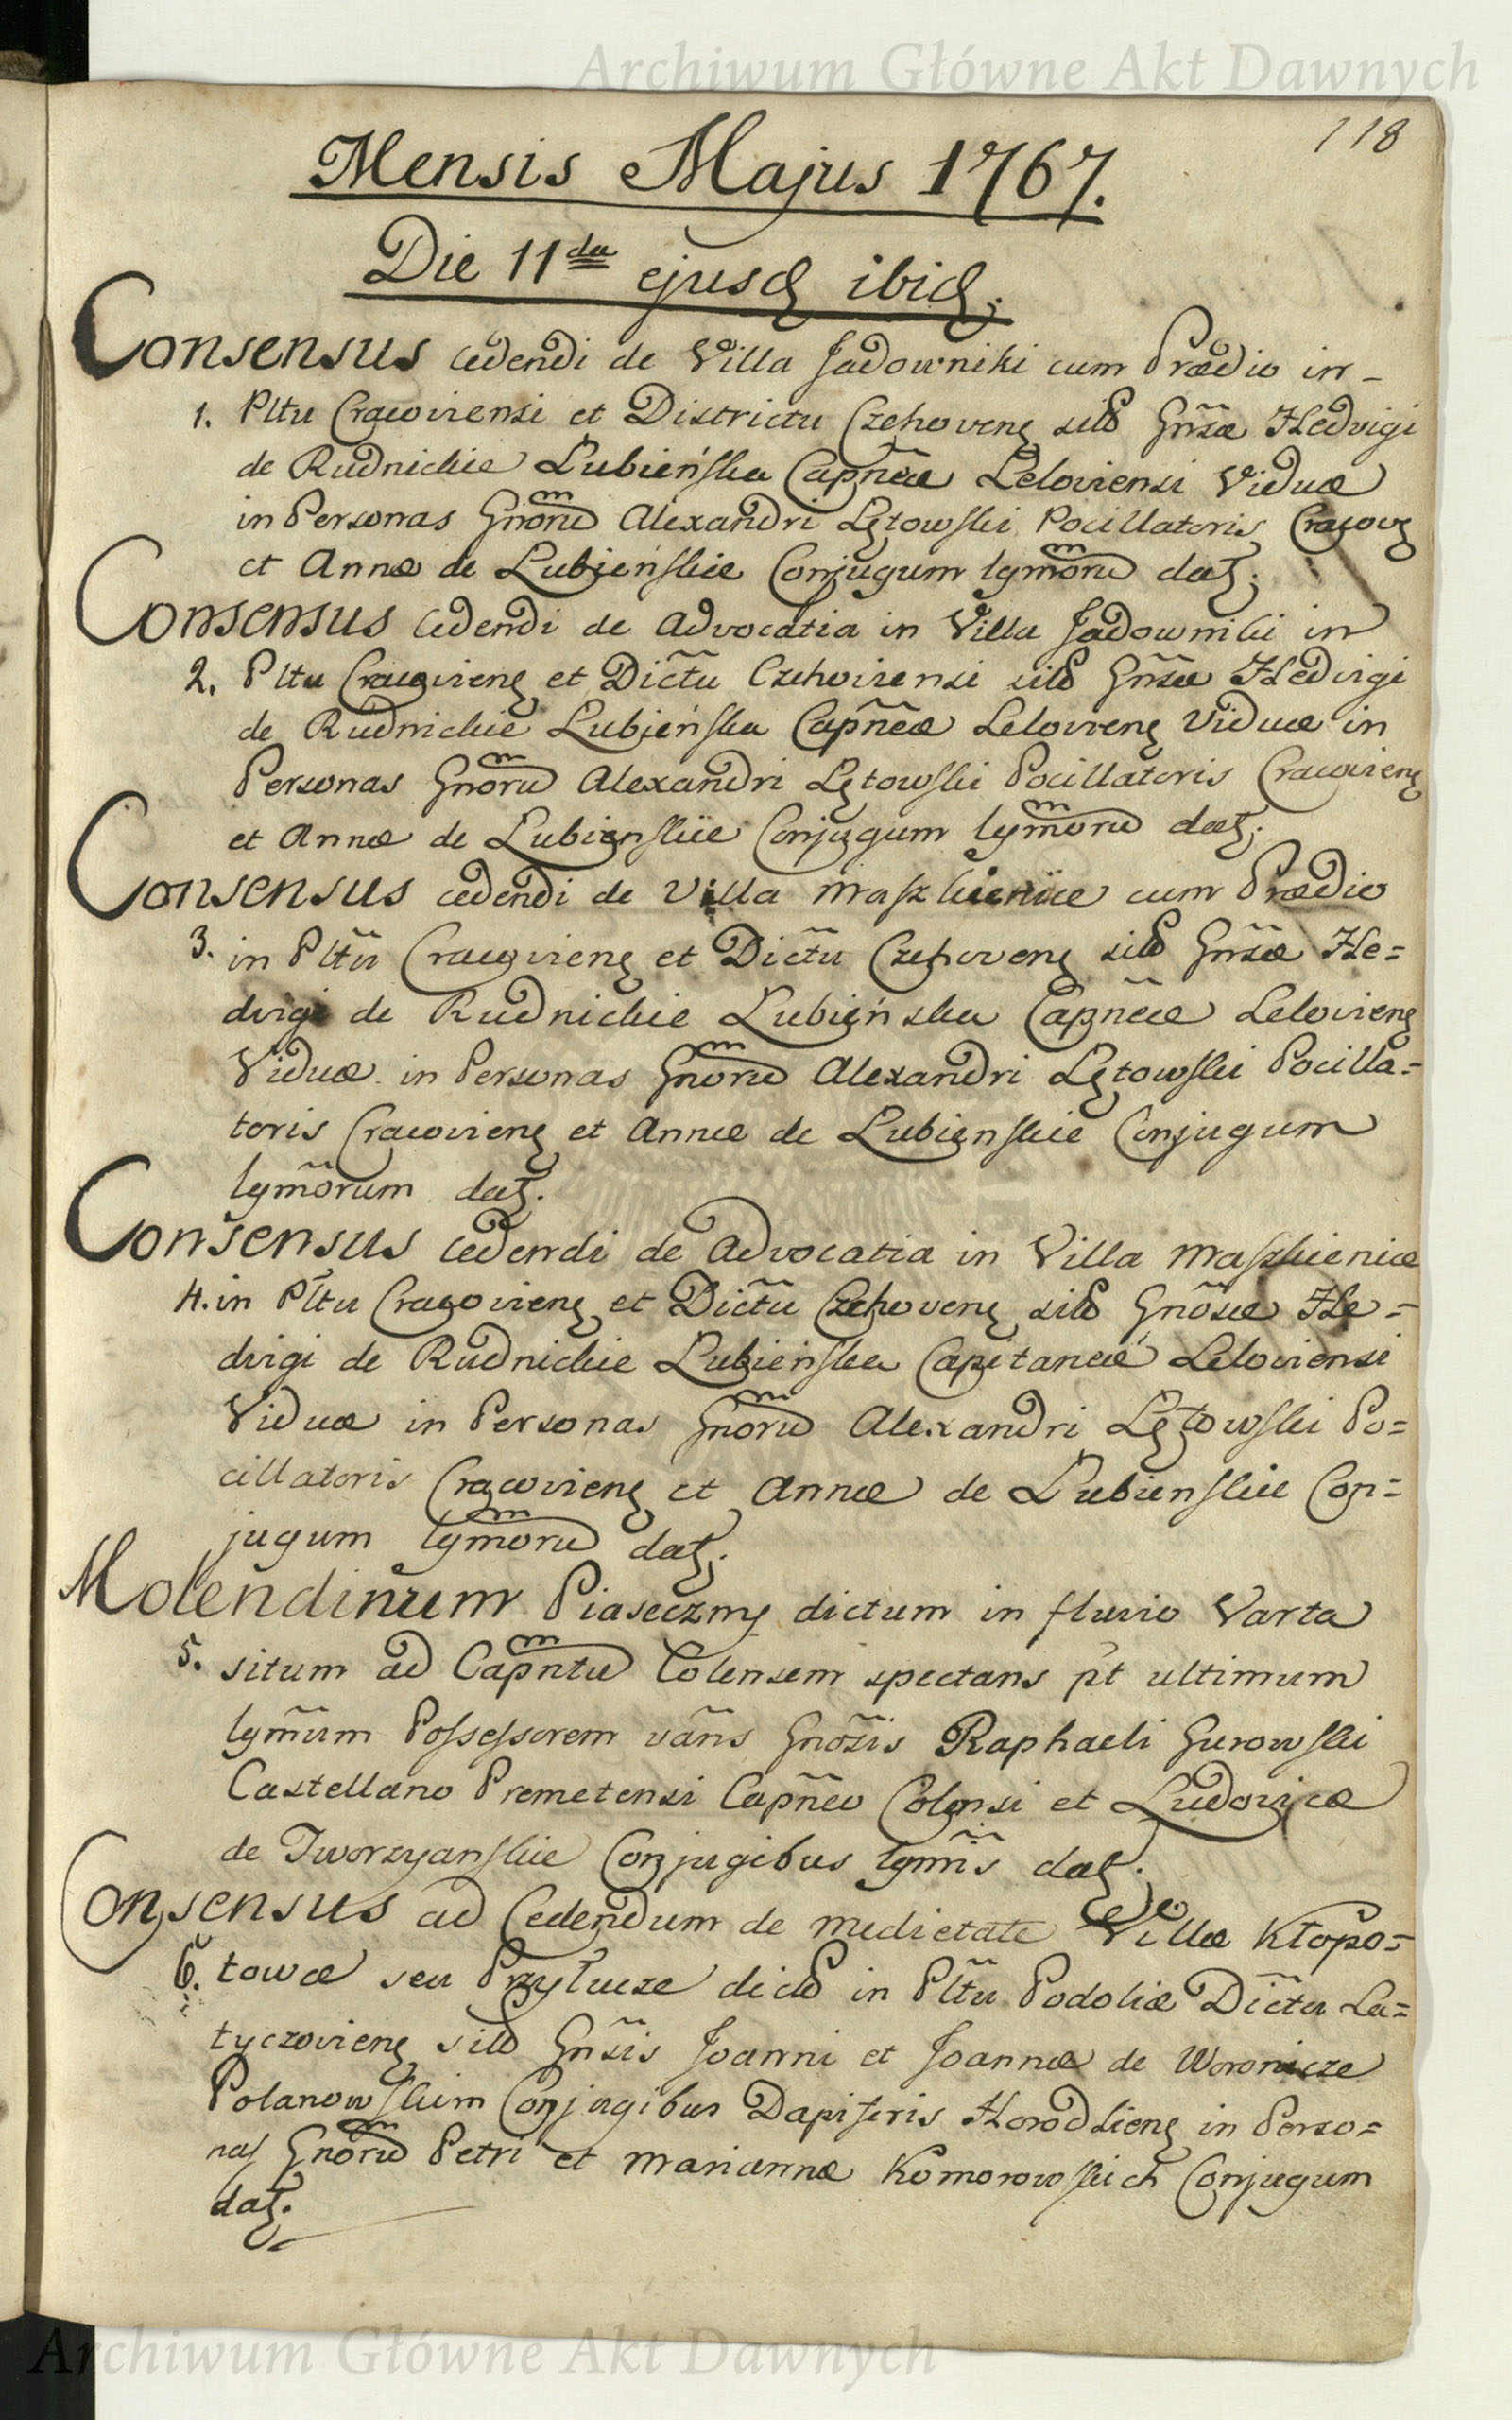 Archiwum Główne Akt Dawnych
118
Mensis Majus 1767.
Die 11da ejusd ibid.
Consensus cedendi de Villa Jadowniki cum Prædio in-
1. Pltu Cracoviensi et Districtu Czchoven sito Gnsæ Hedvigi
de Rudnickie Lubieńska Capneæ Leloviensi Viduæ
in Personas Gnoru Alexandri Lętowski Pocillatoris Cracov
et Annæ de Lubienskie Conjugum lgmoru dat.
Consensus cedendi de Advocatia in Villa Jadowniki in
2. Pltu Cracovien et Dictu Czchoviensi sito Gnsæ Hedvigi
de Rudnickie Lubieńska Capneæ Lelovien Viduæ in
Personas Gnoru Alexandri Lętowski Pocillatoris Cracovien
et Annæ de Lubienskie Conjugum lgmoru dat.
Consensus cedendi de Villa Maszkienice cum Prædio
3. in Pltu Cracovien et Dictu Czchoven sito Gnsæ He=
dvigi de Rudnickie Lubieńska Capneæ Lelovien
Viduæ in Personas Gnoru Alexandri Lętowski Pocilla=
toris Cracovien et Annæ de Lubienskie Conjugum
lgmorum dat.
Consensus cedendi de Advocatia in Villa Maszkienice
4. in Pltu Cracovien et Dictu Czchoven sito Gnosæ He=
dvigi de Rudnickie Lubieńska Capitaneæ Leloviensi
Viduæ in Personas Gnoru Alexandri Lętowski Po=
cillatoris Cracovien et Annæ de Lubienskie Con=
jugum lgmoru dat.
Molendinum Piaseczny dictum in fluvio Varta
5. situm ad Capntu Colensem spectans pt ultimum
lgmum Possessorem vans Gnosis Raphaeli Gurowski
Castellano Premetensi Capneo Colensi et Ludovicæ
de Tworzyanskie Conjugibus lgmis dat.
Consensus ad Cedendum de medietate Villæ Kłopo=
6. towce seu Przyłucze dicto in Pltu Podoliæ Dictu La=
tyczovien sito Gnsis Joanni et Joannæ de Woronicze
Polanowskim Conjugibus Dapiferis Horodlien in Perso=
nas Gnoru Petri et Mariannæ Komorowskich Conjugum
dat.
Archiwum Główne Akt Dawnych